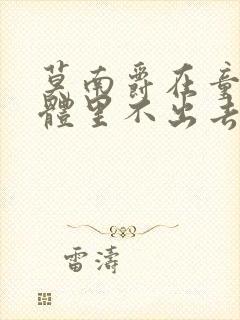 莫南爵在童
體里不出去
雷濤